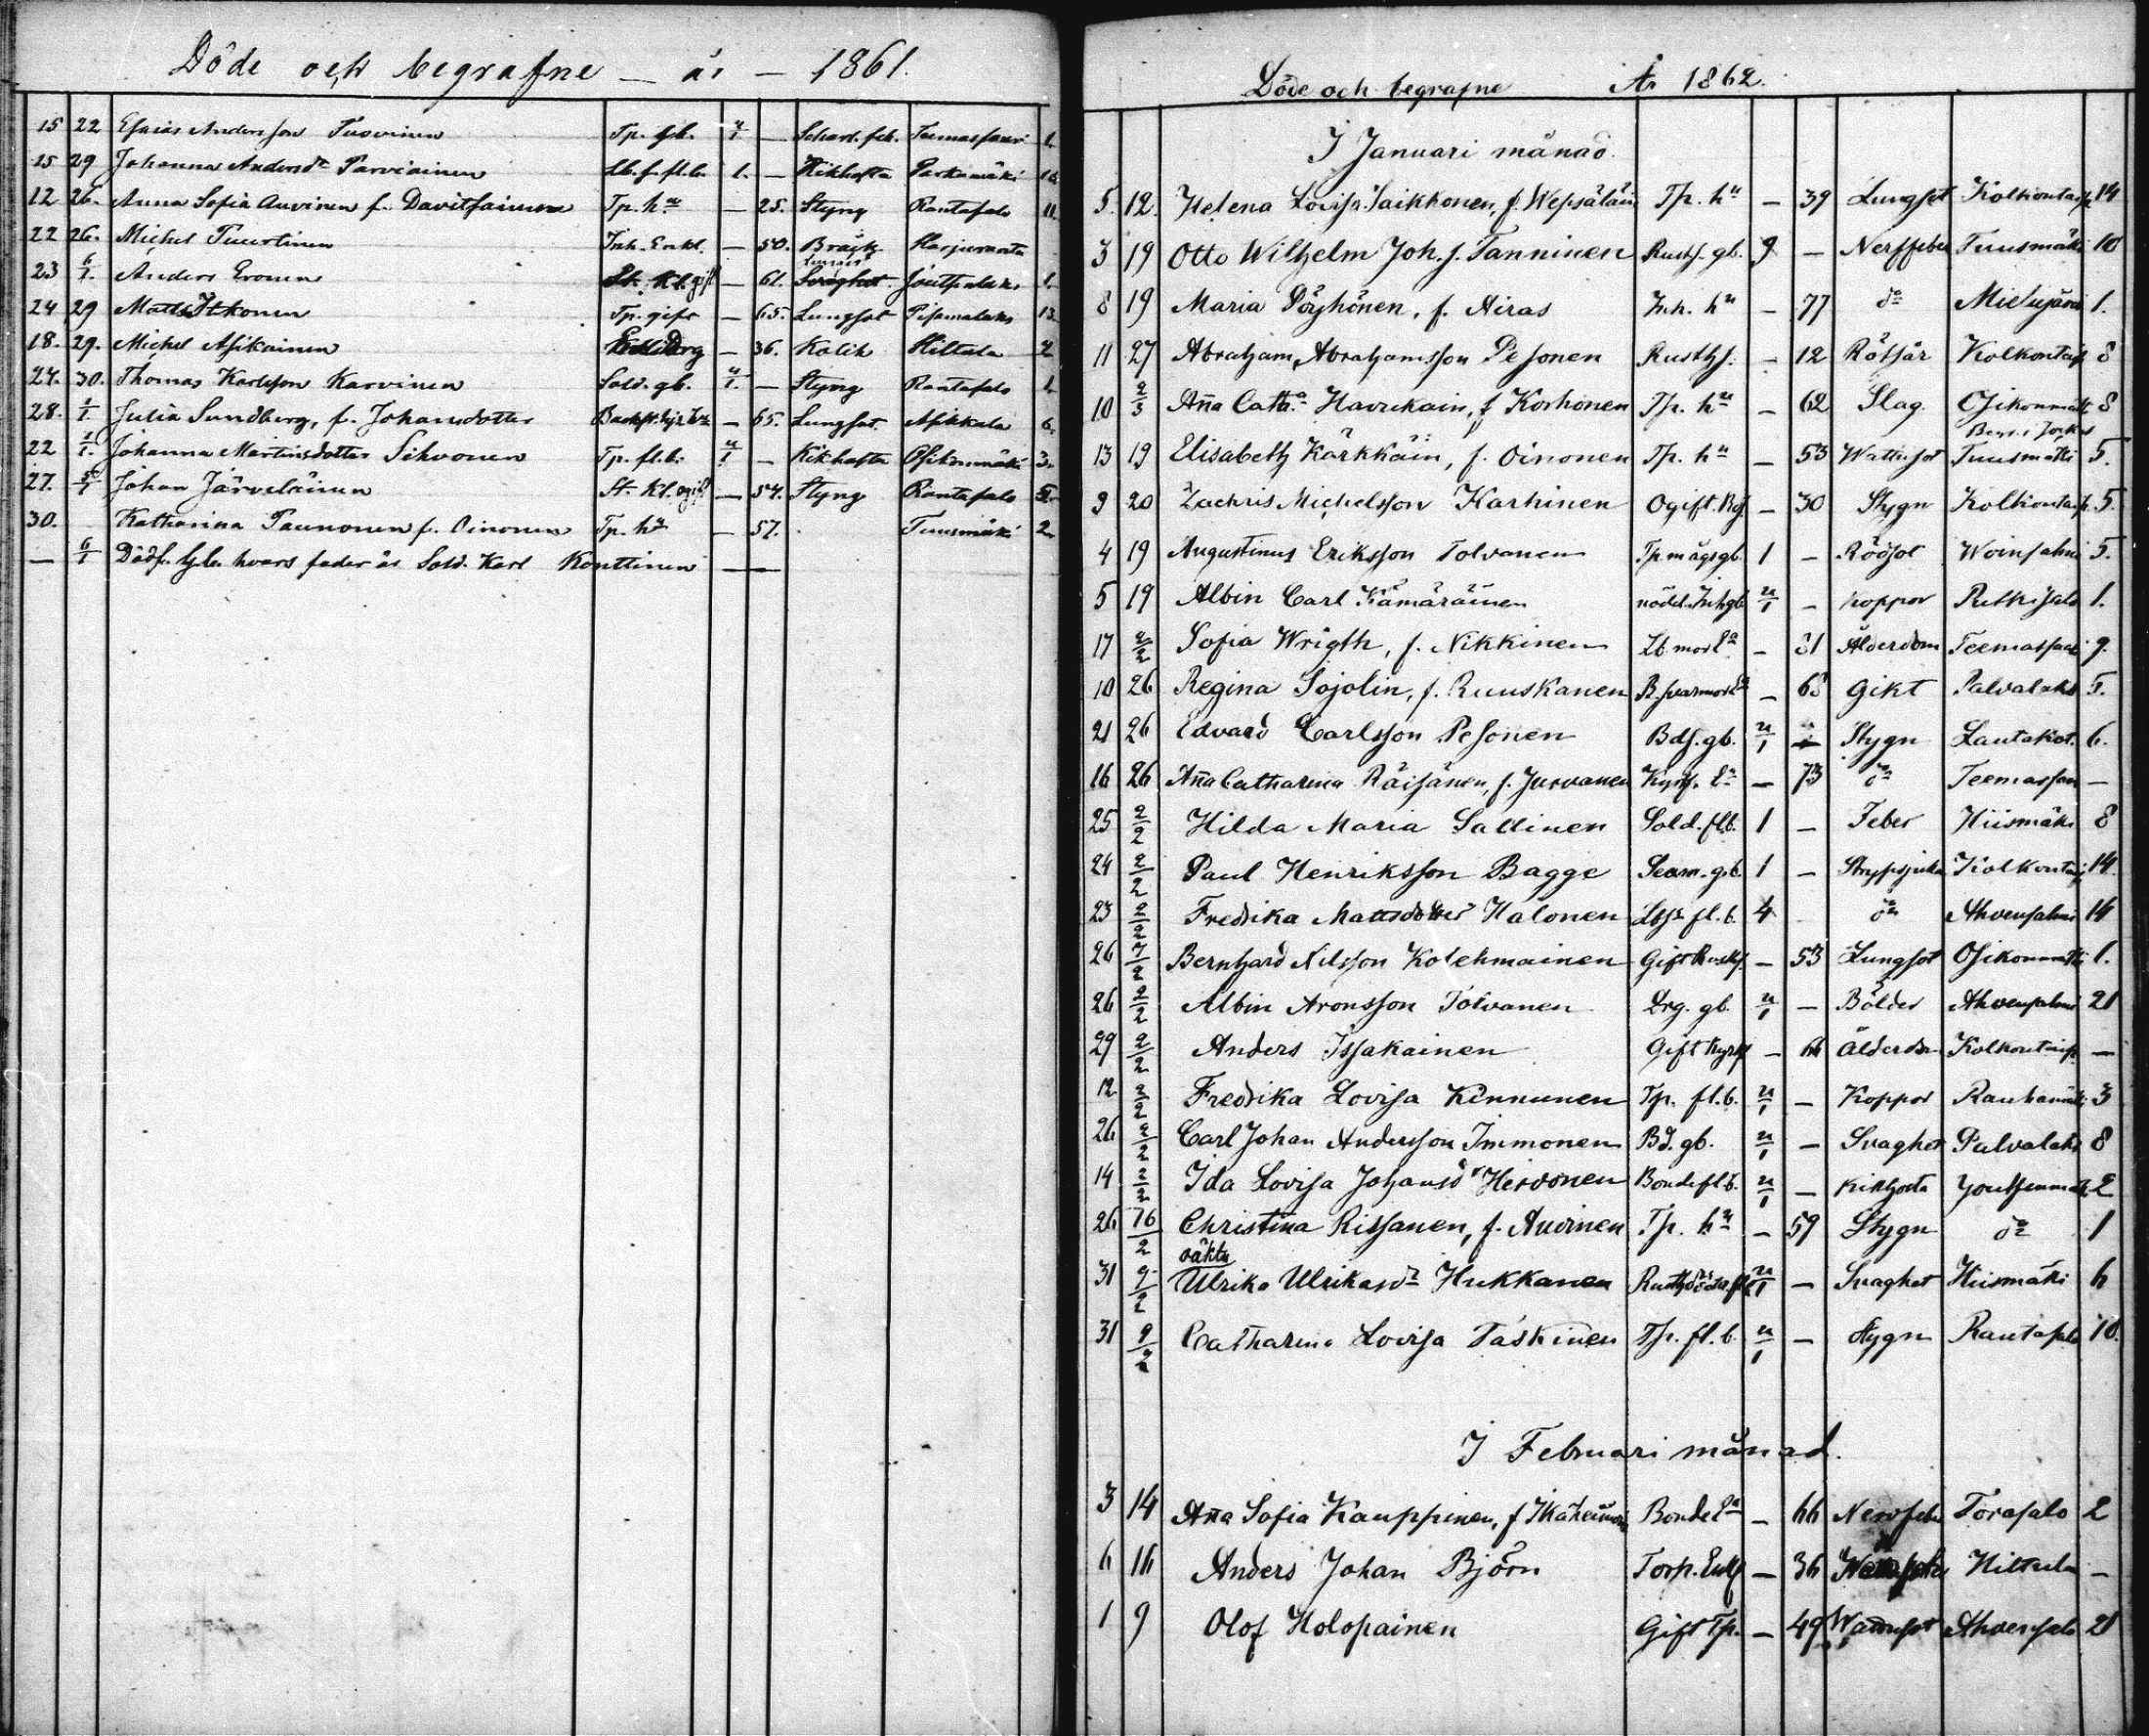 Döde och begrafne — år — 1861.
15 22 Esaias Andersson Tusvinen Tp. gb. u/1 — Scharl. feb. Teemassaari 1.
15 29 Johanna Andersdr Parviainen fl.b. 1. — Kikhosta Parkumäki
12 26. Anna Sofia Auvinen f. Davitsainen Tp. hu — 25. Styng Rantasalo 11.
22 26. Michel Tuurtinen Inh. Enkl. — 50. Bråck Harjuranta
23 6/1. Anders Eronen gift — 61. Joutsalaks 1.
24 29 Matts Itkonen Tp. gift — 65. Lungsot Pesemalaks 13.
18. 29. Michel Asikainen — 36. Kolik Hiltula 2
24. 30. Thomas Karlsson Karvinen Sold. gb. u/1. — Styng Rantasalo 1.
28. 1/1. Julia Sundberg, f. Johansdotter — 65. Lungsot. Asikkala 6.
22 1/1. Johanna Martinsdotter Sihvonen Tp. fl.b. u/1 — Kikhosta Osikonmäki 3.
27. Johan Järveläinen St. Kl. ogift — 54. Styng Rantasalo 5.
30. Katharina Paunonen f. Oinonen Tp. hu — 57. Tuusmäki 2.
— 6/1 Dödf. hvars fader är Sold. Karl Konttinen —
Döde och begrafne År 1862.
I Januari månad.
5. 12. Helena Lovisa Saikkonen, f. Wepsäläin Tp. hu — 39 Lungsot Kolkontaip. 14
3 19 Otto Wilhelm Joh. s. Tanninen Rusth. gb. 9 — Nerffeber Tuusmäki 10
8 19 Maria Pöyhönen, f. Airas Inh. hu — 77 do Mielujärvi 1.
11 27 Abraham Abrahamsson Pesonen Rusths. — 12 Rötfär Kolkontaip 8
10 2/3 Aña Catha. Havukain, f Korhonen Tp. hu — 62 Slag. Osikonmäki 8
Begr. i Jockas
13 19 Elisabeth Kärkkäin, f. Oinonen Tp. hu — 53 Wattusot Tuusmäki 5.
9 20 Zachris Michelsson Karhinen Ogift. — 30 Stygn Kolkontaip. 5.
4 19 Augustinus Eriksson Tolvanen Tp mågs gb. 1 — Rödsot Woinsalmi 5.
5 19 Albin Carl Kämäräinen nödd. Inh gb u/1 — Koppor Pitkisalo 1.
17 2/2 Sofia Wrigth, f. Nikkinen Ea — 81 Ålderdom Teemassaar 9.
10 26 Regina Sojolin, f. Ruuskanen — 68 Gikt Palvalaks 5.
21 26 Edvard Carlsson Pesonen Bds. gb. u/1 — Stygn Lautakot. 6.
16 26 Aña Catharina Räisänen, f. Jurvanen Ea — 73 do Teemassaar —
25 2/2 Hilda Maria Sallinen Sold. flb. 1 — Feber Hiismäki 8
24 2/2 Paul Henriksson Bagge gb. 1 — Strypsjuka Kolkontaip 14.
23 2/2 Fredrika Mattsdotter Halonen fl. b. 4 do Ahvensalmi 14
26 7/2 Bernhard Nilsson Kolehmainen Gift Rusth. — 53 Lungsot Osikonmäki 1.
26 2/2 Albin Aronsson Tolvanen Drg. gb. u/1 — Bölder Ahvensalmi 21
29 2/2 Anders Issakainen Gift — 66 Ålderdm Kolkontaip. —
12 3/2 Fredrika Lovisa Kinnunen Tp. fl.b. u/1 — Koppor Rauhamäki 3
26 2/2 Carl Johan Andersson Immonen Bd. gb. u/1 — Svaghet Palvalaks 8
14 2/2 Ida Lovisa Johansdr Hirvonen Bonde fl b. u/1 — Kikhosta Joutsenmäk. 2
26 16/2 Christina Rissanen, f. Auvinen Tp. hu — 59 Stygn do 1
oäkta
31 9/2 Ulrika Ulrikasdr Hukkanen u/1 — Svaghet Hiismäki 6
31 9/2 Catharina Lovisa Taskinen Tp. fl. b. u/1 — Stygn Rantasalo 10.
I Februari månad.
3 14 Aña Sofia Kauppinen, f Ikäheimon Bonde Ea — 66 Nervfeb Torasalo 2
6 16 Anders Johan Björn Torp. Enkl — 36 Hiltula —
1 9 Olof Holopainen Gift Tp. — 49 Wattusot Ahvensalo 21